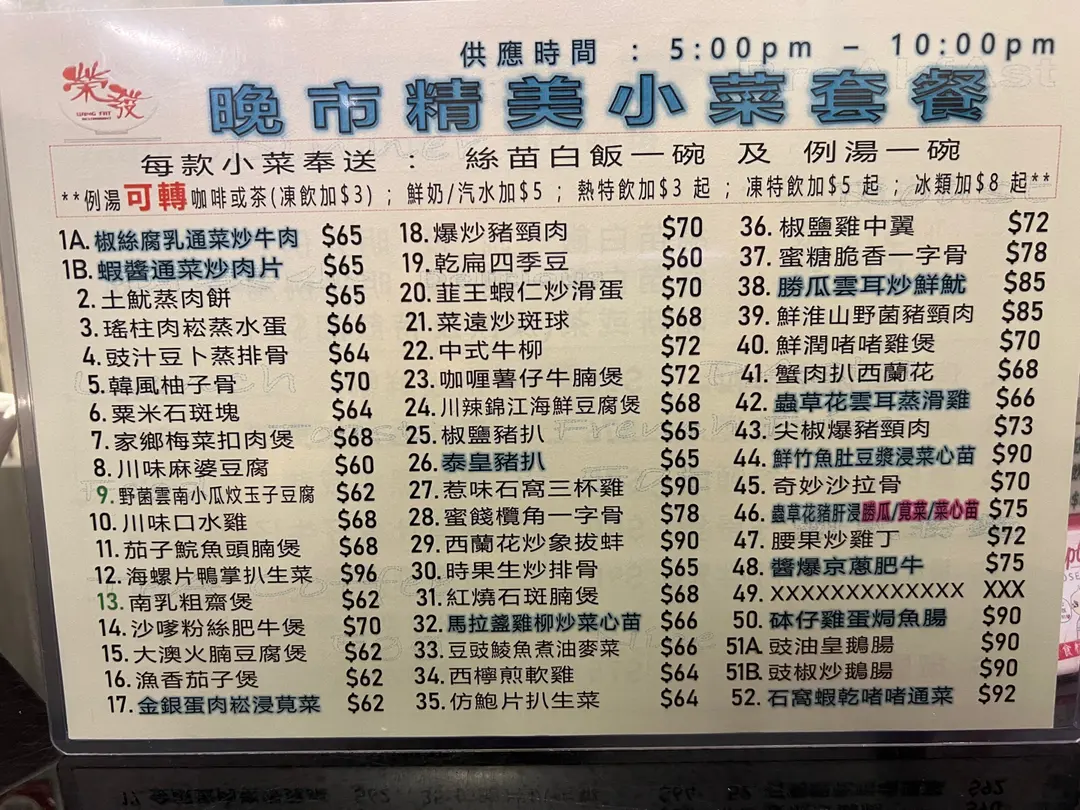 供應時間 : 5:00pm - 10:00pm
榮發
WING FAT
RESTAURANT
晚市精美小菜套餐
每款小菜奉送 : 絲苗白飯一碗 及 例湯一碗
**例湯可轉咖啡或茶(凍飲加$3) ; 鮮奶/汽水加$5 ; 熱特飲加$3 起 ; 凍特飲加$5 起 ; 冰類加$8 起**
1A. 椒絲腐乳通菜炒牛肉 $65
1B. 蝦醬通菜炒肉片 $65
2. 土魷蒸肉餅 $65
3. 瑤柱肉崧蒸水蛋 $66
4. 豉汁豆卜蒸排骨 $64
5. 韓風柚子骨 $70
6. 粟米石斑塊 $64
7. 家鄉梅菜扣肉煲 $68
8. 川味麻婆豆腐 $60
9. 野菌雲南小瓜炆玉子豆腐 $62
10. 川味口水雞 $68
11. 茄子鯇魚頭腩煲 $68
12. 海螺片鴨掌扒生菜 $96
13. 南乳粗齋煲 $62
14. 沙嗲粉絲肥牛煲 $70
15. 大澳火腩豆腐煲 $62
16. 漁香茄子煲 $62
17. 金銀蛋肉崧浸莧菜 $62
18. 爆炒豬頸肉 $70
19. 乾扁四季豆 $60
20. 韮王蝦仁炒滑蛋 $70
21. 菜遠炒斑球 $68
22. 中式牛柳 $72
23. 咖喱薯仔牛腩煲 $72
24. 川辣錦江海鮮豆腐煲 $68
25. 椒鹽豬扒 $65
26. 泰皇豬扒 $65
27. 惹味石窩三杯雞 $90
28. 蜜餞欖角一字骨 $78
29. 西蘭花炒象拔蚌 $90
30. 時果生炒排骨 $65
31. 紅燒石斑腩煲 $68
32. 馬拉盞雞柳炒菜心苗 $66
33. 豆豉鯪魚煮油麥菜 $66
34. 西檸煎軟雞 $64
35. 仿鮑片扒生菜 $64
36. 椒鹽雞中翼 $72
37. 蜜糖脆香一字骨 $78
38. 勝瓜雲耳炒鮮魷 $85
39. 鮮淮山野菌豬頸肉 $85
40. 鮮潤啫啫雞煲 $70
41. 蟹肉扒西蘭花 $68
42. 蟲草花雲耳蒸滑雞 $66
43. 尖椒爆豬頸肉 $73
44. 鮮竹魚肚豆漿浸菜心苗 $90
45. 奇妙沙拉骨 $70
46. 蟲草花豬肝浸勝瓜/莧菜/菜心苗 $75
47. 腰果炒雞丁 $72
48. 醬爆京蔥肥牛 $75
49. XXXXXXXXXXXXX XXX
50. 砵仔雞蛋焗魚腸 $90
51A. 豉油皇鵝腸 $90
51B. 豉椒炒鵝腸 $90
52. 石窩蝦乾啫啫通菜 $92